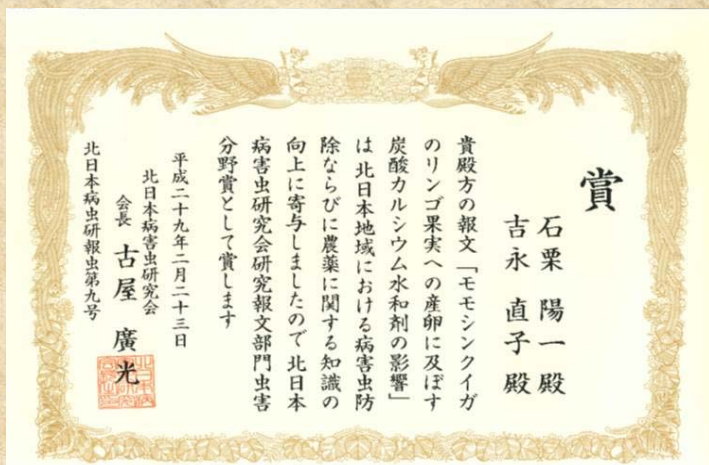 賞
石栗 陽一 殿
吉永 直子 殿
貴殿方の報文「モモシンクイガ
のリンゴ果実への産卵に及ぼす
炭酸カルシウム水和剤の影響」
は 北日本地域における病害虫防
除ならびに農薬に関する知識の
向上に寄与しましたので 北日本
病害虫研究会研究報文部門虫害
分野賞として賞します
平成二十九年二月二十三日
北日本病害虫研究会
会長 古屋 廣光
北日本病虫研報虫第九号